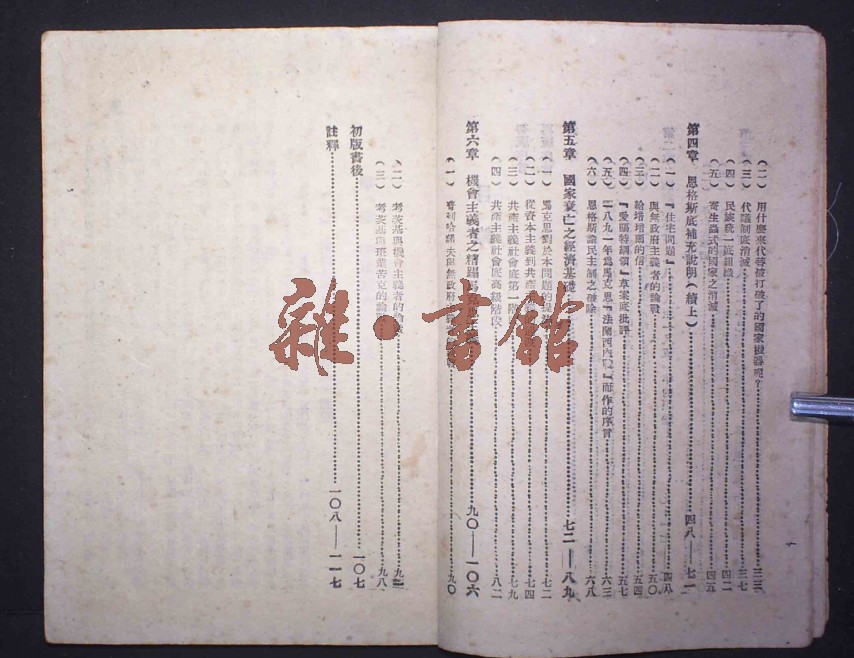 (二) 用什麼來代替被打破了的國家機器呢?……三三
(三) 代議制底消滅……三七
(四) 民族統一底組織……四二
(五) 寄生蟲式的國家之消滅……四五
第四章 恩格斯底補充說明(續上)……四八——七一
(一) 『住宅問題』……四八
(二) 與無政府主義者的論戰……五〇
(三) 給培培爾的信……五四
(四) 『愛爾特綱領』草案底批評……五七
(五) 一八九一年為馬克思『法蘭西內戰』而作的序言……六三
(六) 恩格斯論民主制之破除……六八
第五章 國家衰亡之經濟基礎……七二——八九
(一) 馬克思對於本問題的……七二
(二) 從資本主義到共產主義……七四
(三) 共產主義社會底第一階……七九
(四) 共產主義社會底高級階段……八二
第六章 機會主義者之糟蹋馬克思主義……九〇——一〇六
(一) 普列哈諾夫與無政府……九〇
(二) 考茨基與機會主義者的論戰……九二
(三) 考茨基與班葉苦克的論戰……九八
初版書後……一〇七
註釋……一〇八——一一七
雜·書館